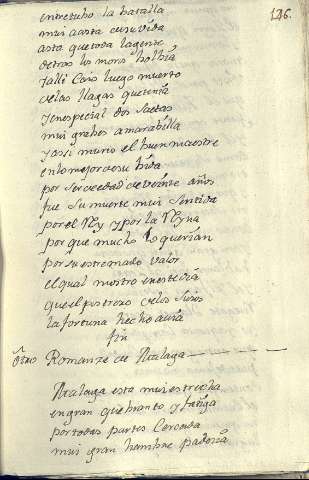 126.
entretubo la batalla
mui acosta desu vida
asta que toda la gente
detras los moros bolbia
y alli Caio luego muerto
de las llagas que tenia
y en especial dos saetas
mui grabes amarabilla
y assi murio el buen maestre
en lo mejor de su bida
por ser de edad de veinte años
fue su muerte mui sentida
por el Rey y por la Reyna
por que mucho lo querian
por su estremado valor
el qual mostro en este dia
que el postrero de los suios
la fortuna hecho auia
fin
Otro Romanze de Malaga
Malaga esta mui estrecha
en gran quebranto y fatiga
por todas partes Cercada
mui gran hambre padezia